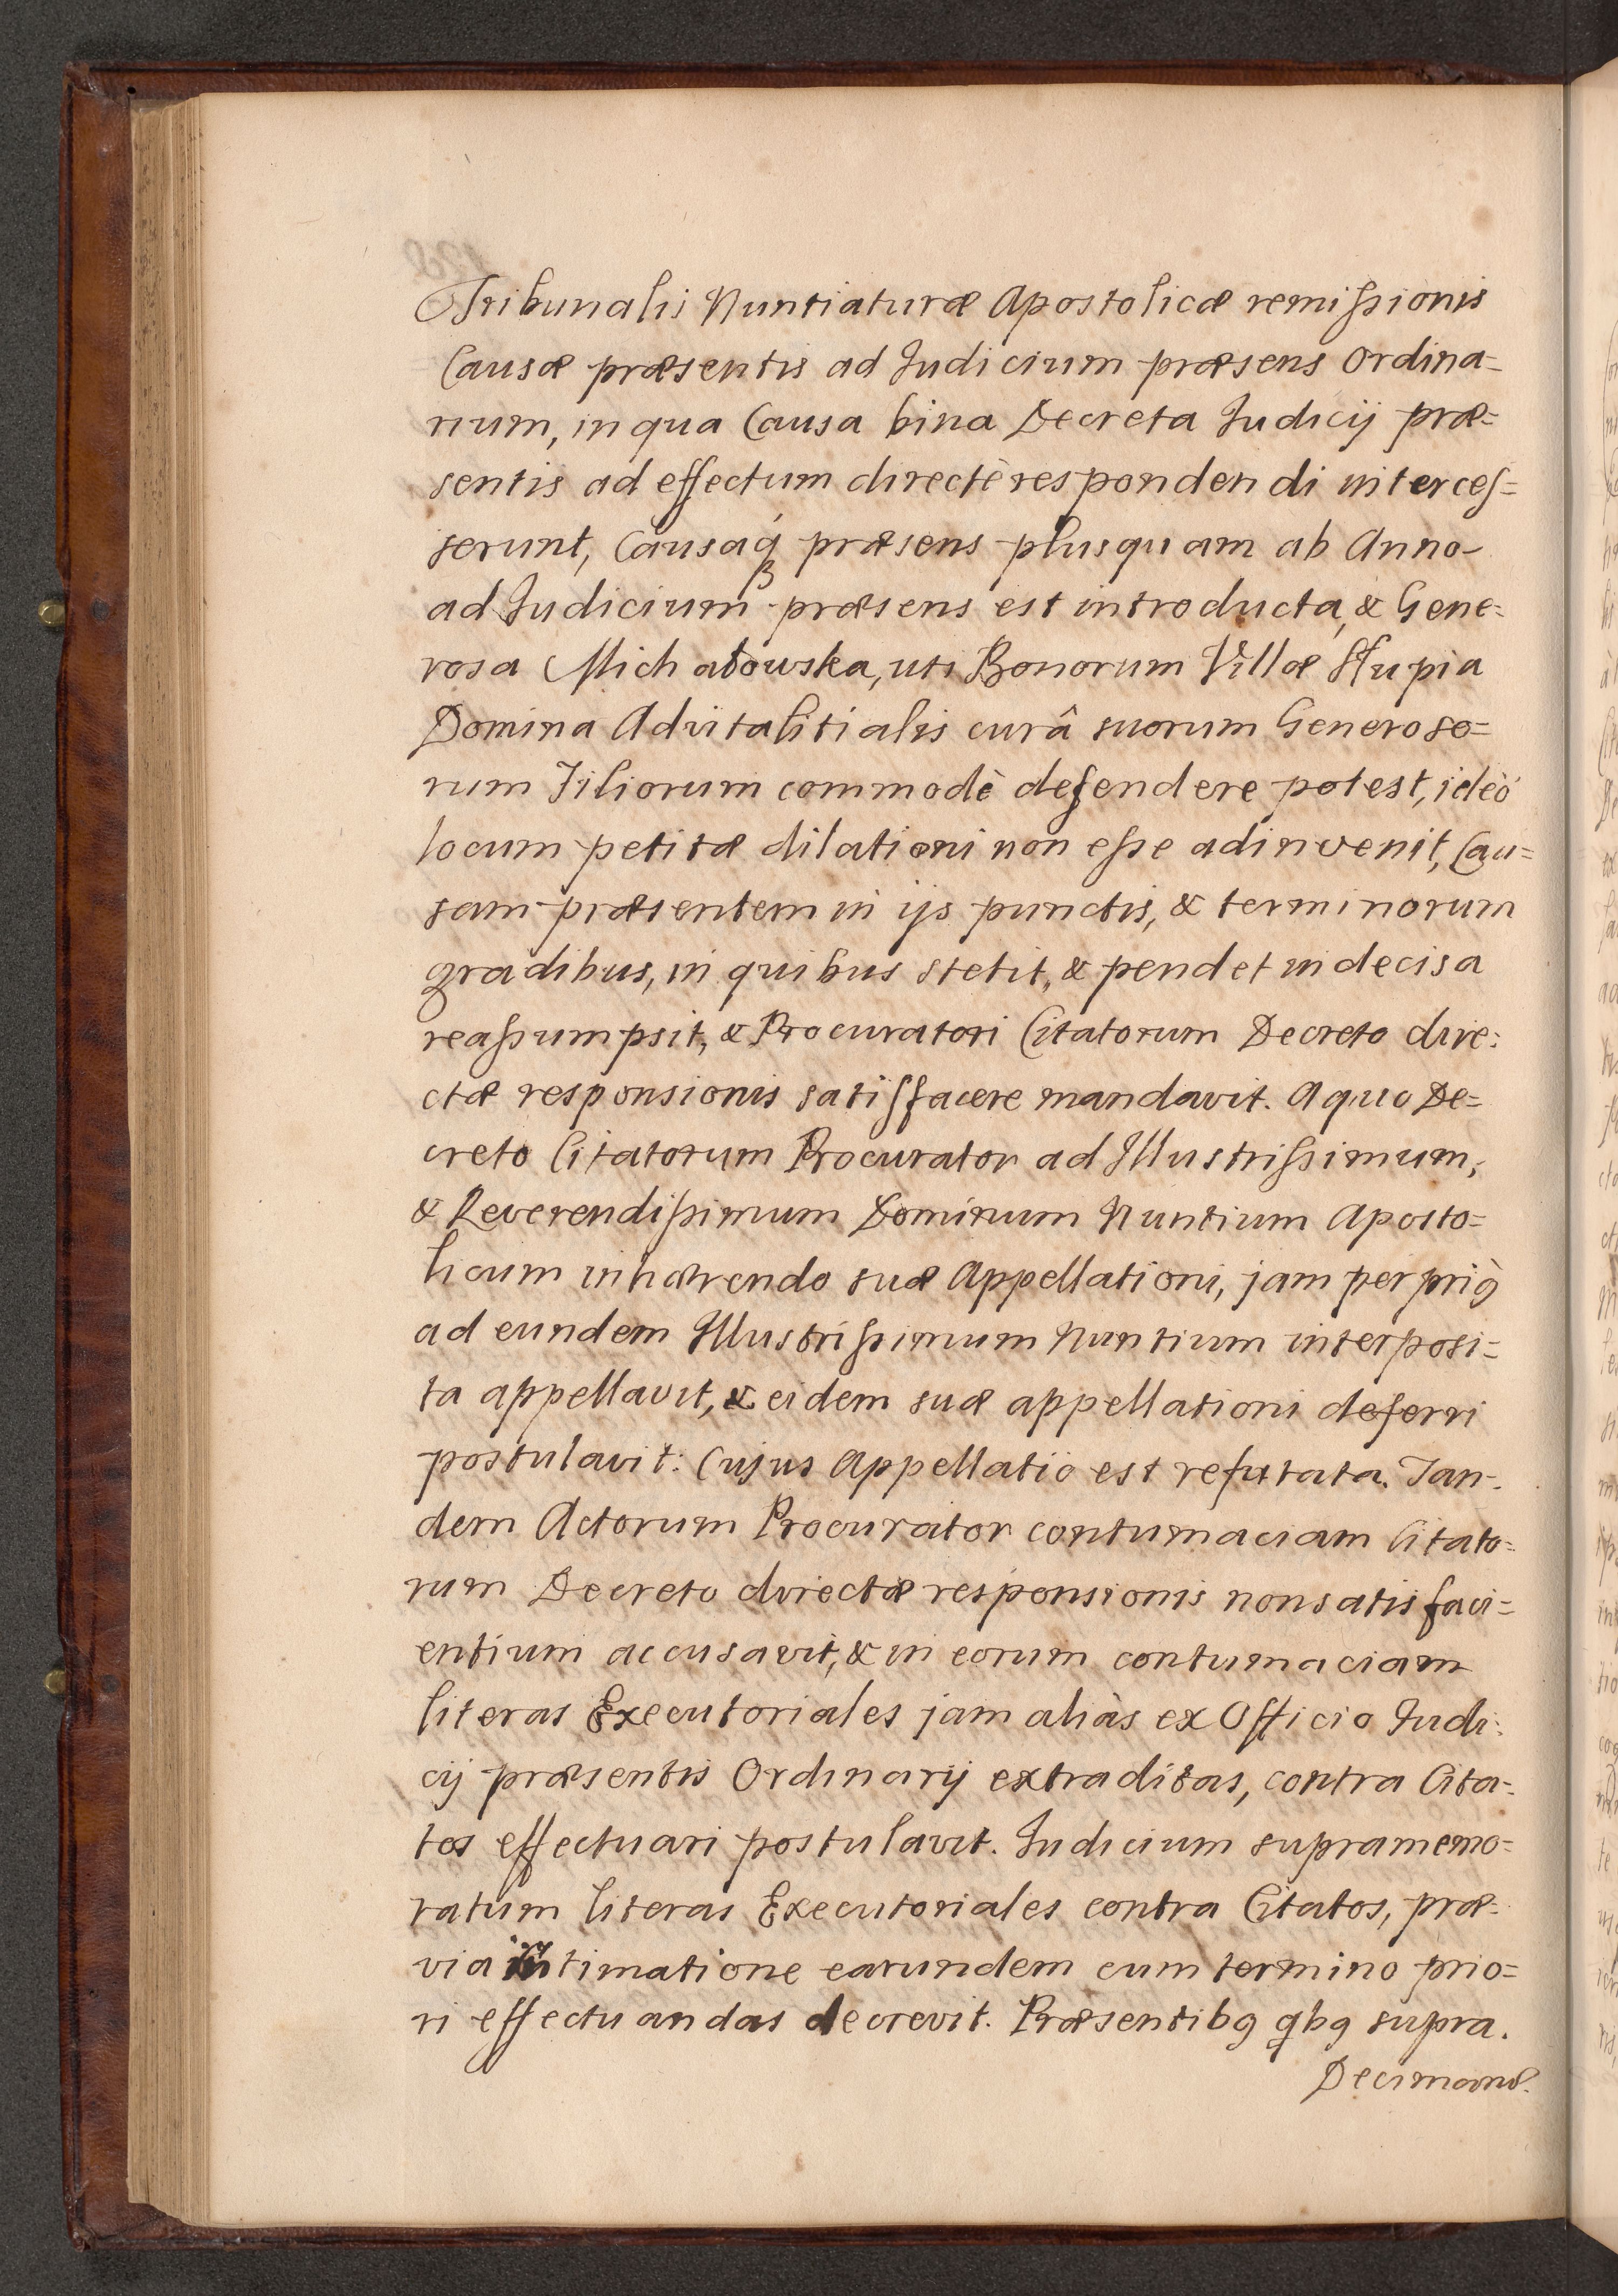 Tribunalis Nuntiaturæ Apostolicæ remiſsionis
Causæ præsentis ad Judicium præsens Ordina=
rium, in qua Causa bina Decreta Judicij præ=
sentis ad effectum directè respondendi interceſ=
serunt, Causaq́ꝫ præsens plusquam ab Anno
ad Judicium præsens est introducta, & Gene=
rosa Michałowska, uti Bonorum Villæ Słupia
Domina Advitalitialis curâ suorum Generoso=
rum Filiorum commodè defendere potest, ideò
locum petitæ dilationi non eſse adinvenit, Cau=
sam præsentem in ijs punctis, & terminorum
gradibus, in quibus stetit, & pendet indecisa
reaſsumpsit, & Procuratori Citatorum Decreto dire=
ctæ responsionis satisfacere mandavit. A quo De=
creto Citatorum Procurator ad Illustriſsimum,
& Reverendiſsimum Dominum Nuntium Aposto=
licum inhærendo suæ Appellationi, jam per priꝰ
ad eundem Illustriſsimum Nuntium interposi=
ta appellavit, & eidem suæ appellationi deferri
postulavit: Cujus Appellatio est refutata. Tan=
dem Actorum Procurator contumaciam Citato=
rum Decreto directæ responsionis non satisfaci=
entium accusavit, & in eorum contumaciam
literas Executoriales jam aliàs ex Officio Judi=
cij præsentis Ordinarij extraditas, contra Cita=
tos effectuari postulavit. Judicium supramemo=
ratum literas Executoriales contra Citatos, præ=
via intimatione earundem cum termino prio=
ri effectuandas decrevit. Præsentibꝰ qbꝰ supra.